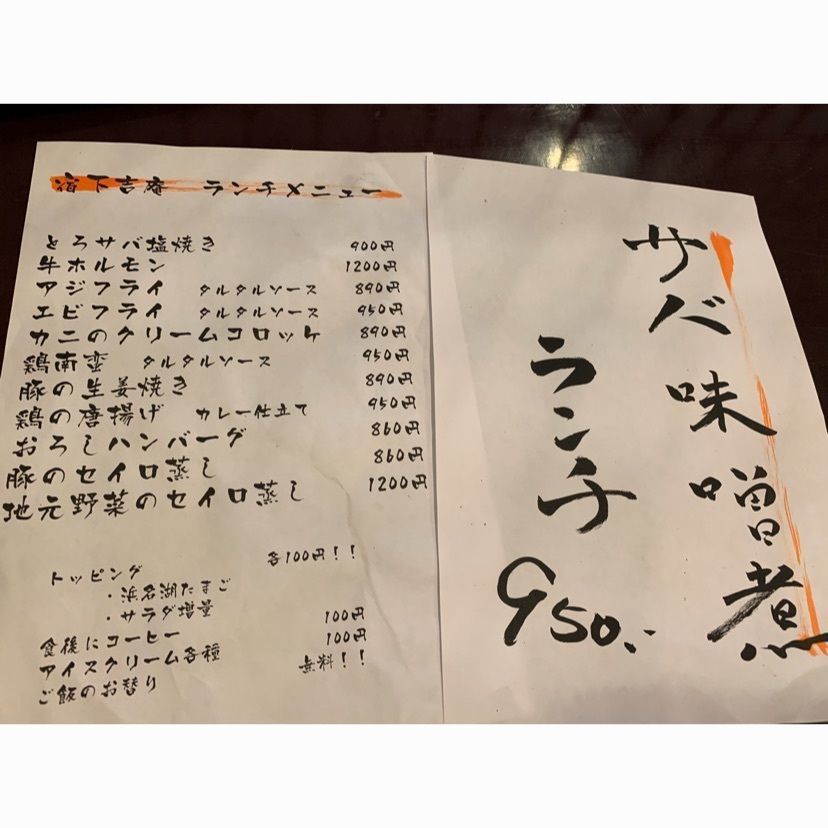 下吉庵 ランチメニュー
とろサバ塩焼き 900円
牛ホルモン 1200円
アジフライ タルタルソース 890円
エビフライ タルタルソース 950円
カニのクリームコロッケ 890円
鶏南蛮 タルタルソース 950円
豚の生姜焼き 890円
鶏の唐揚げ カレー仕立て 950円
おろしハンバーグ 860円
豚のセイロ蒸し 860円
地元野菜のセイロ蒸し 1200円
トッピング 各100円！！
・浜名湖たまご
・サラダ増量
食後にコーヒー 100円
アイスクリーム各種 100円
ご飯のお替り 無料！！
サバ味噌煮
ランチ
950.-